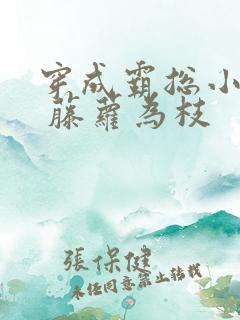 穿成霸总小
藤蘿為枝
張保健
未經同意禁止轉載